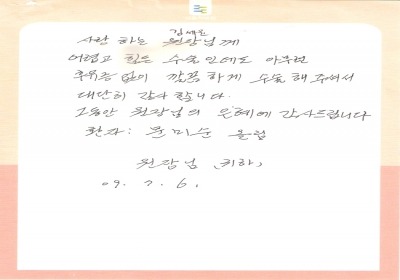 김세윤
사랑 하는 원장님께
어렵고 힘든 수술 인데도 아무런
후유증 없이 깔끔 하게 수술 해 주셔서
대단히 감사 합니다.
그동안 원장님의 은혜에 감사드립니다
환자: 윤미순 올림
원장님 (귀하)
09. 7. 6.